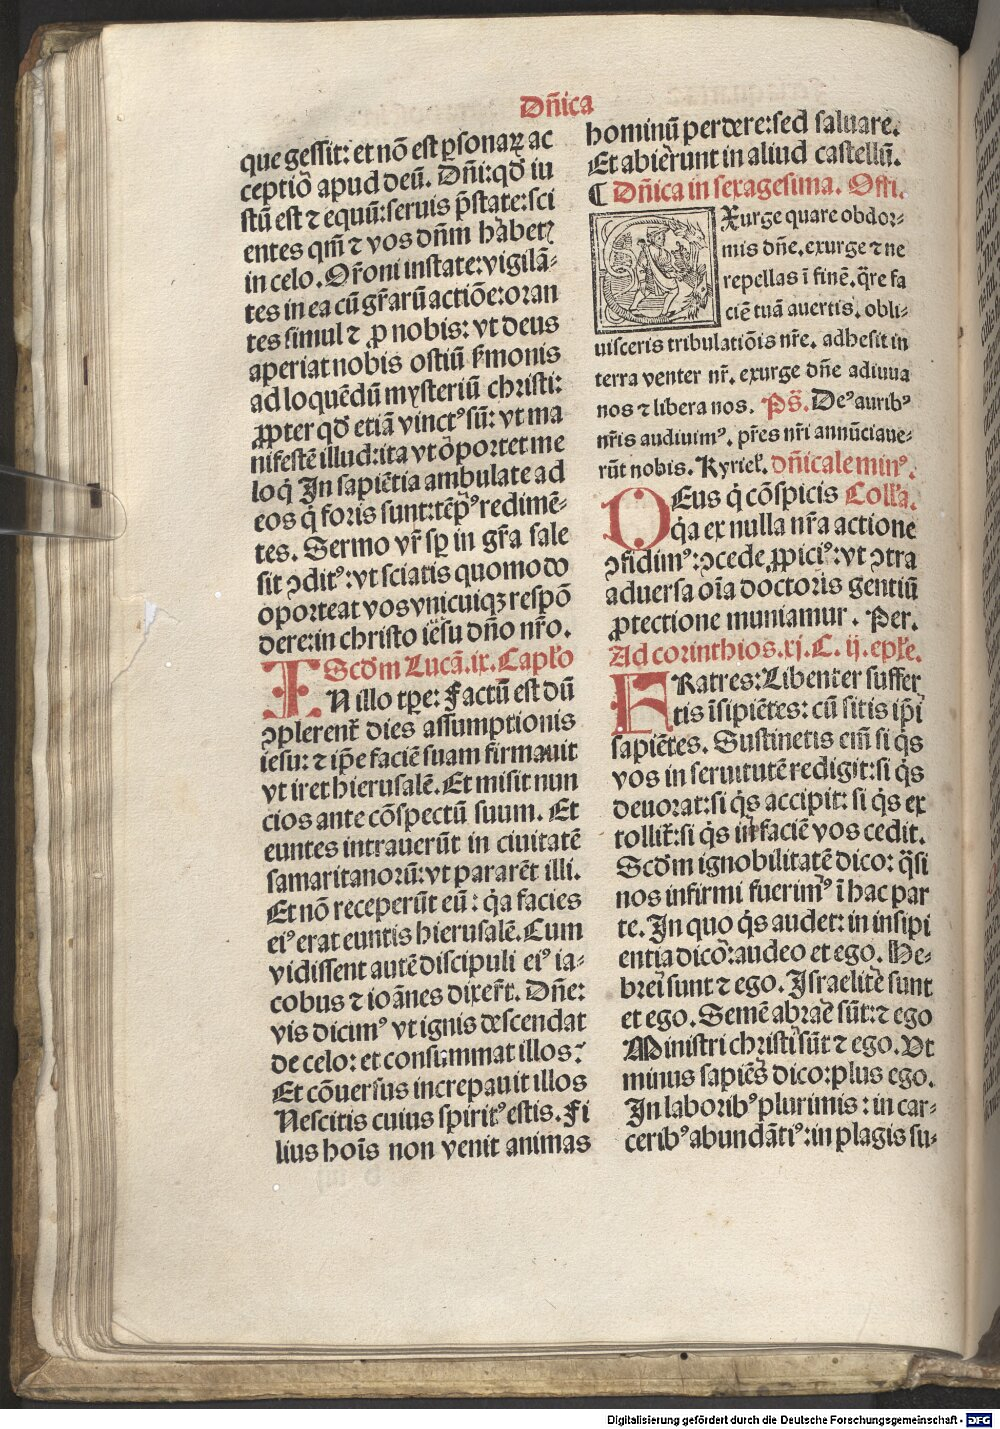 Dñica
que gessit: et nõ est ꝑsonaꝝ ac
ceptiõ apud deũ. Dñi: qđ iu
stũ est ⁊ equũ: seruis p̃state: sci
entes qm̃ ⁊ vos dñm habetꝭ
in celo. Or̃oni instate: vigilã-
tes in ea cũ gr̃arũ actiõe: oran
tes simul ⁊ ꝓ nobis: vt deus
aperiat nobis ostiũ ẜmonis
ad loquẽdũ mysteriũ christi:
ꝓpter qđ etiã vinctꝰ sũ: vt ma
nifestẽ illud: ita vt oportet me
loq̇ In sapiẽtia ambulate ad
eos q̇ foris sunt: tẽpꝰ redimẽ-
tes. Sermo vr̃ sꝑ in gr̃a sale
sit ↄditꝰ: vt sciatis quomodo
oporteat vos vnicuiqꝫ respõ
dere: in christo iẽsu dño nr̃o.
Scđm Lucã. ix. Capl̃o
IN illo tꝑe: Factũ est dũ
ↄplerent̃ dies assumptionis
iesu: ⁊ ip̃e faciẽ suam firmauit
vt iret hierusalẽ. Et misit nun
cios ante cõspectũ suum. Et
euntes intrauerũt in ciuitatẽ
samaritanorũ: vt pararẽt illi.
Et nõ receperũt eũ: q̇a facies
eiꝰ erat euntis hierusalẽ. Cum
vidissent autẽ discipuli eiꝰ ia-
cobus ⁊ ioãnes dixer̃t. Dñe:
vis dicimꝰ vt ignis descendat
de celo: et consummat illos?
Et cõuersus increpauit illos
Nescitis cuius spiritꝰ estis. Fi
lius hoĩs non venit animas
hominũ perdere: sed saluare.
Et abierunt in aliud castellũ.
¶ Dñica in sexagesima. Offi.
EXurge quare obdor-
mis dñe. exurge ⁊ ne
repellas ĩ finẽ. q̃re fa
ciẽ tuã auertis. obli-
uisceris tribulatiõis nr̃e. adhesit in
terra venter nr̃. exurge dñe adiuua
nos ⁊ libera nos. Ps̃. Deꝰ auribꝰ
nr̃is audiuimꝰ. pr̃es nr̃i annũciaue-
rũt nobis. Kyriel̃. dñicale minꝰ.
DEus q̇ cõspicis Coll̃a.
q̇a ex nulla nr̃a actione
ↄfidimꝰ: ↄcede ꝓpiciꝰ: vt ↄtra
aduersa oĩa doctoris gentiũ
ꝓtectione muniamur. Per.
Ad corinthios. xj. C. ij. epl̃e.
FRatres: Libenter suffer
tis ĩsipiẽtes: cũ sitis ip̃i
sapiẽtes. Sustinetis eim̃ si q̇s
vos in seruitutẽ redigit: si q̇s
deuorat: si q̇s accipit: si q̇s ex
tollit̃: si q̇s in faciẽ vos cedit.
Scđm ignobilitatẽ dico: q̃si
nos infirmi fuerimꝰ ĩ hac par
te. In quo q̇s audet: in insipi
entia dico: audeo et ego. He-
brei sunt ⁊ ego. Israelite sunt
et ego. Semẽ abrae sũt: ⁊ ego
Ministri christi sũt ⁊ ego. Vt
minus sapiẽs dico: plus ego.
In laboribꝰ plurimis: in car-
ceribꝰ abundãtiꝰ: in plagis su-
Digitalisierung gefördert durch die Deutsche Forschungsgemeinschaft - DFG